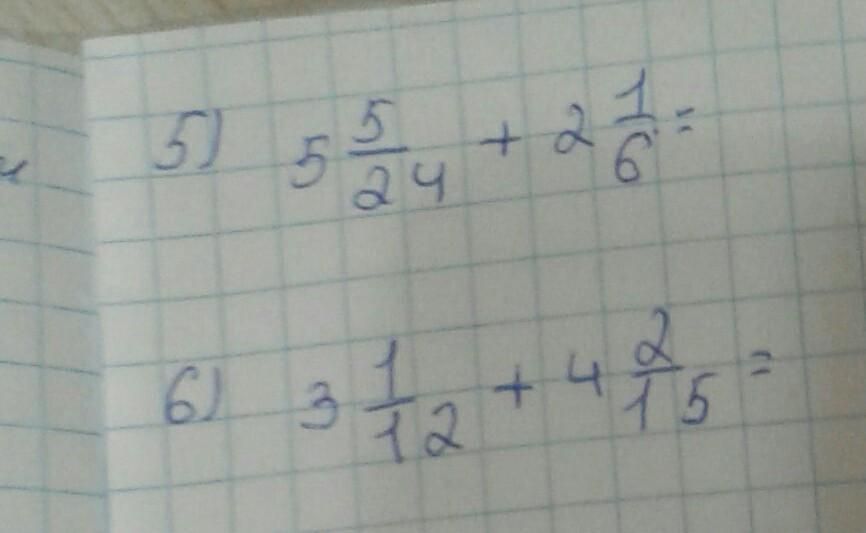 5) 5 5/24 + 2 1/6 =
6) 3 1/12 + 4 2/15 =